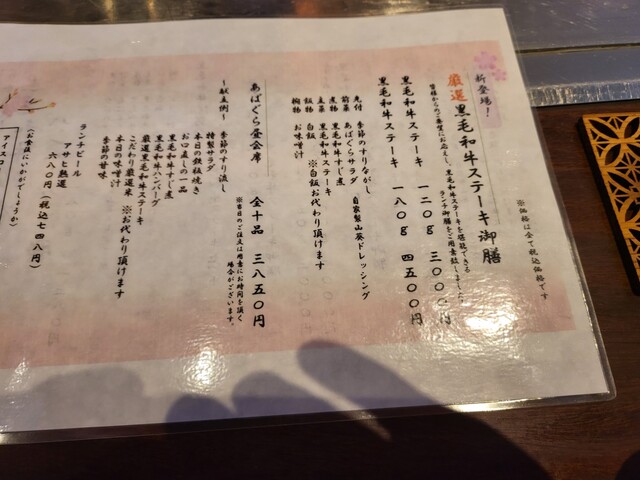 ※価格は全て税込価格です
新登場！
厳選黒毛和牛ステーキ御膳
皆様からのご要望にお応えし、黒毛和牛ステーキを堪能できる
ランチ御膳をご用意致しました！
黒毛和牛ステーキ 一二〇g 三〇〇〇円
黒毛和牛ステーキ 一八〇g 四五〇〇円
先付 季節のすりながし
前菜 あばぐらサラダ 自家製山葵ドレッシング
煮物 黒毛和牛すじ煮
主菜 黒毛和牛ステーキ
飯物 白飯 ※白飯お代わり頂けます
椀物 お味噌汁
あばぐら昼会席 全十品 三八五〇円
※当日のご注文は用意にお時間を頂く
場合がございます。
～献立例～
季節のすり流し
特製サラダ
本日の鉄板焼き
お口直しの一品
黒毛和牛すじ煮
黒毛和牛ハンバーグ
厳選黒毛和牛ステーキ
こだわり厳選米 ※お代わり頂けます
本日の味噌汁
季節の甘味
ランチビール
アサヒ熟選
六八〇円（税込七四八円）
（お食後にいかがでしょうか）
アイスコ